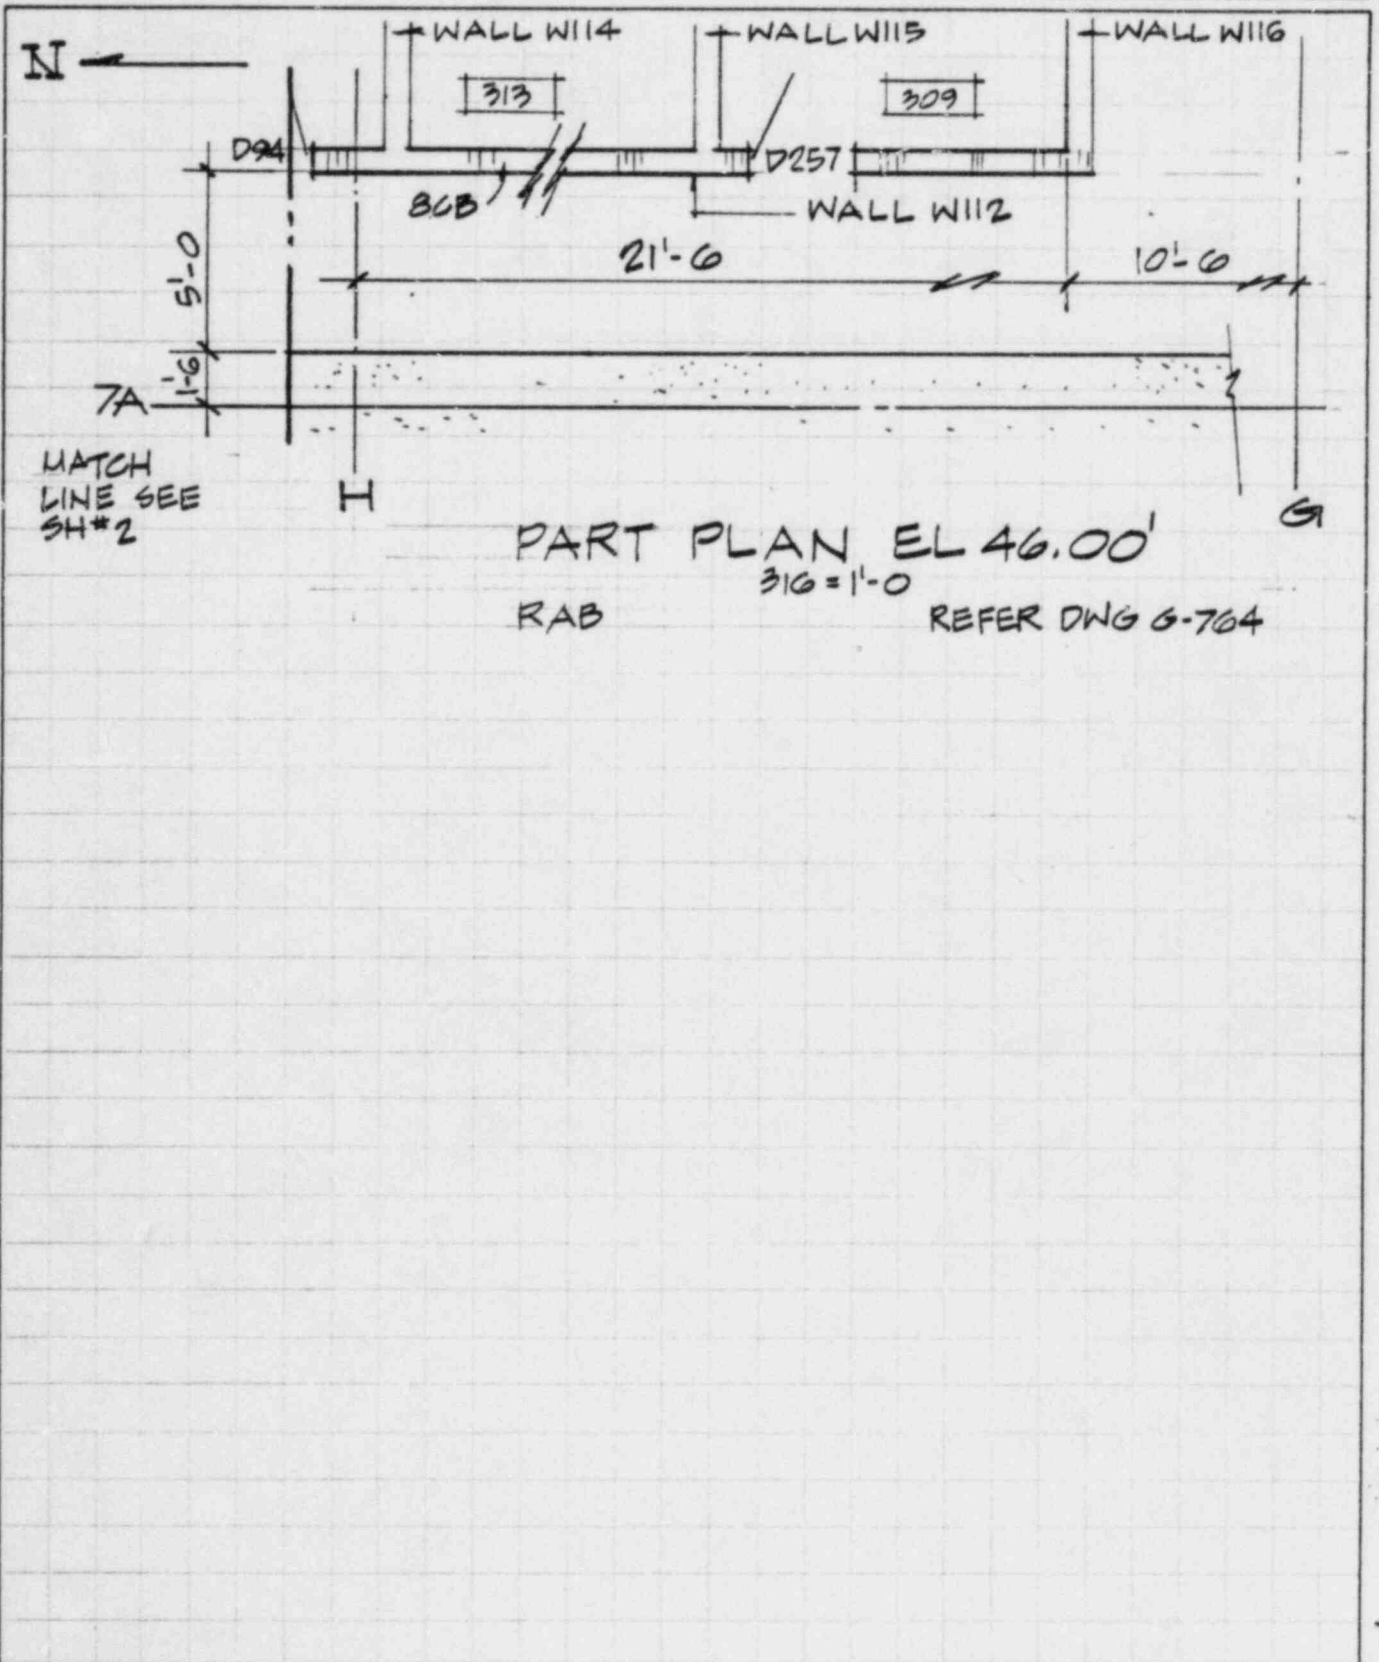 WALL W114
WALL W115
WALL W116
N
313
309
D94
D257
8CB
WALL W112
21'-6
10'-6
5'-0
1'-6
7A
MATCH
LINE SEE
SH#2
H
G
PART PLAN EL 46.00'
316 = 1'-0
RAB
REFER DWG G-764